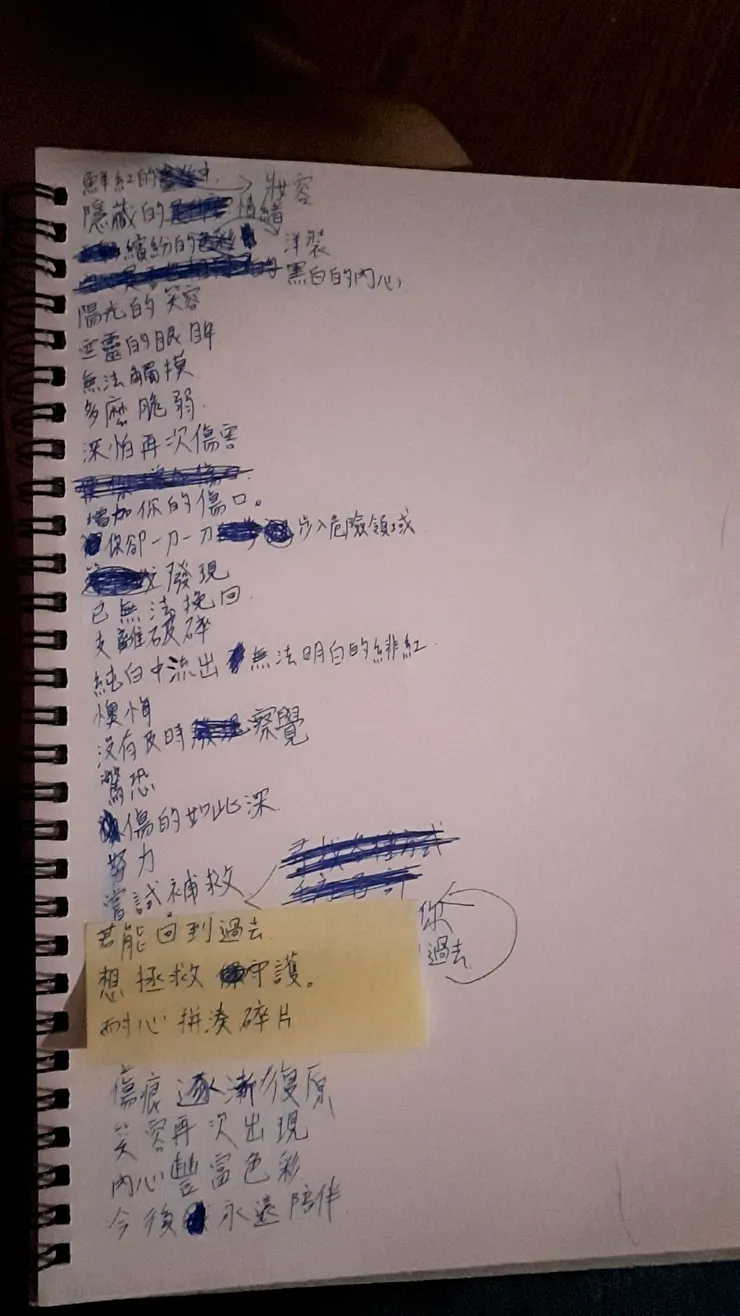 鮮紅的 妝容
隱藏的 情緒
繽紛的色彩 洋裝
黑白的內心
陽光的笑容
空靈的眼眸
無法觸摸
多麼脆弱
深怕再次傷害
增加你的傷口。
你卻一刀一刀 步入危險領域
發現
已無法挽回
支離破碎
純白中流出無法明白的緋紅
懊悔
沒有及時察覺
驚恐
傷的如此深
努力
嘗試補救
若能回到過去
想拯救 守護。
耐心拼湊碎片
你
過去
傷痕逐漸復原
笑容再次出現
內心豐富色彩
今後 永遠陪伴